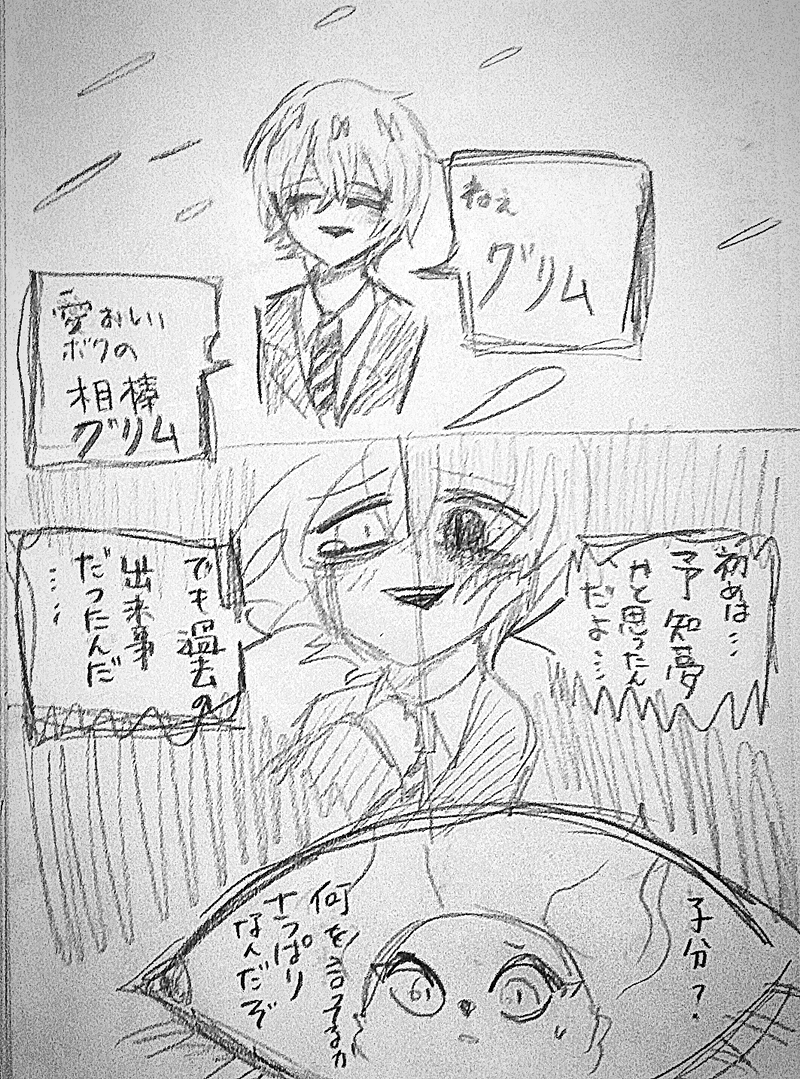 ねぇ
グリム
愛おしい
ボクの
相棒
グリム
初めは…
予知夢
かと思ったん
だよ…
でも過去の
出来事
だったんだ
……
子分?
何を言ってるか
さっぱり
なんだぞ